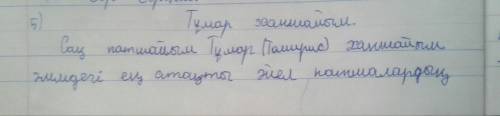 5) Тұмар ханшайым.
Сақ патшайым Тұмар (Томирис) ханшайым
әлемдегі ең атақты әйел патшалардың